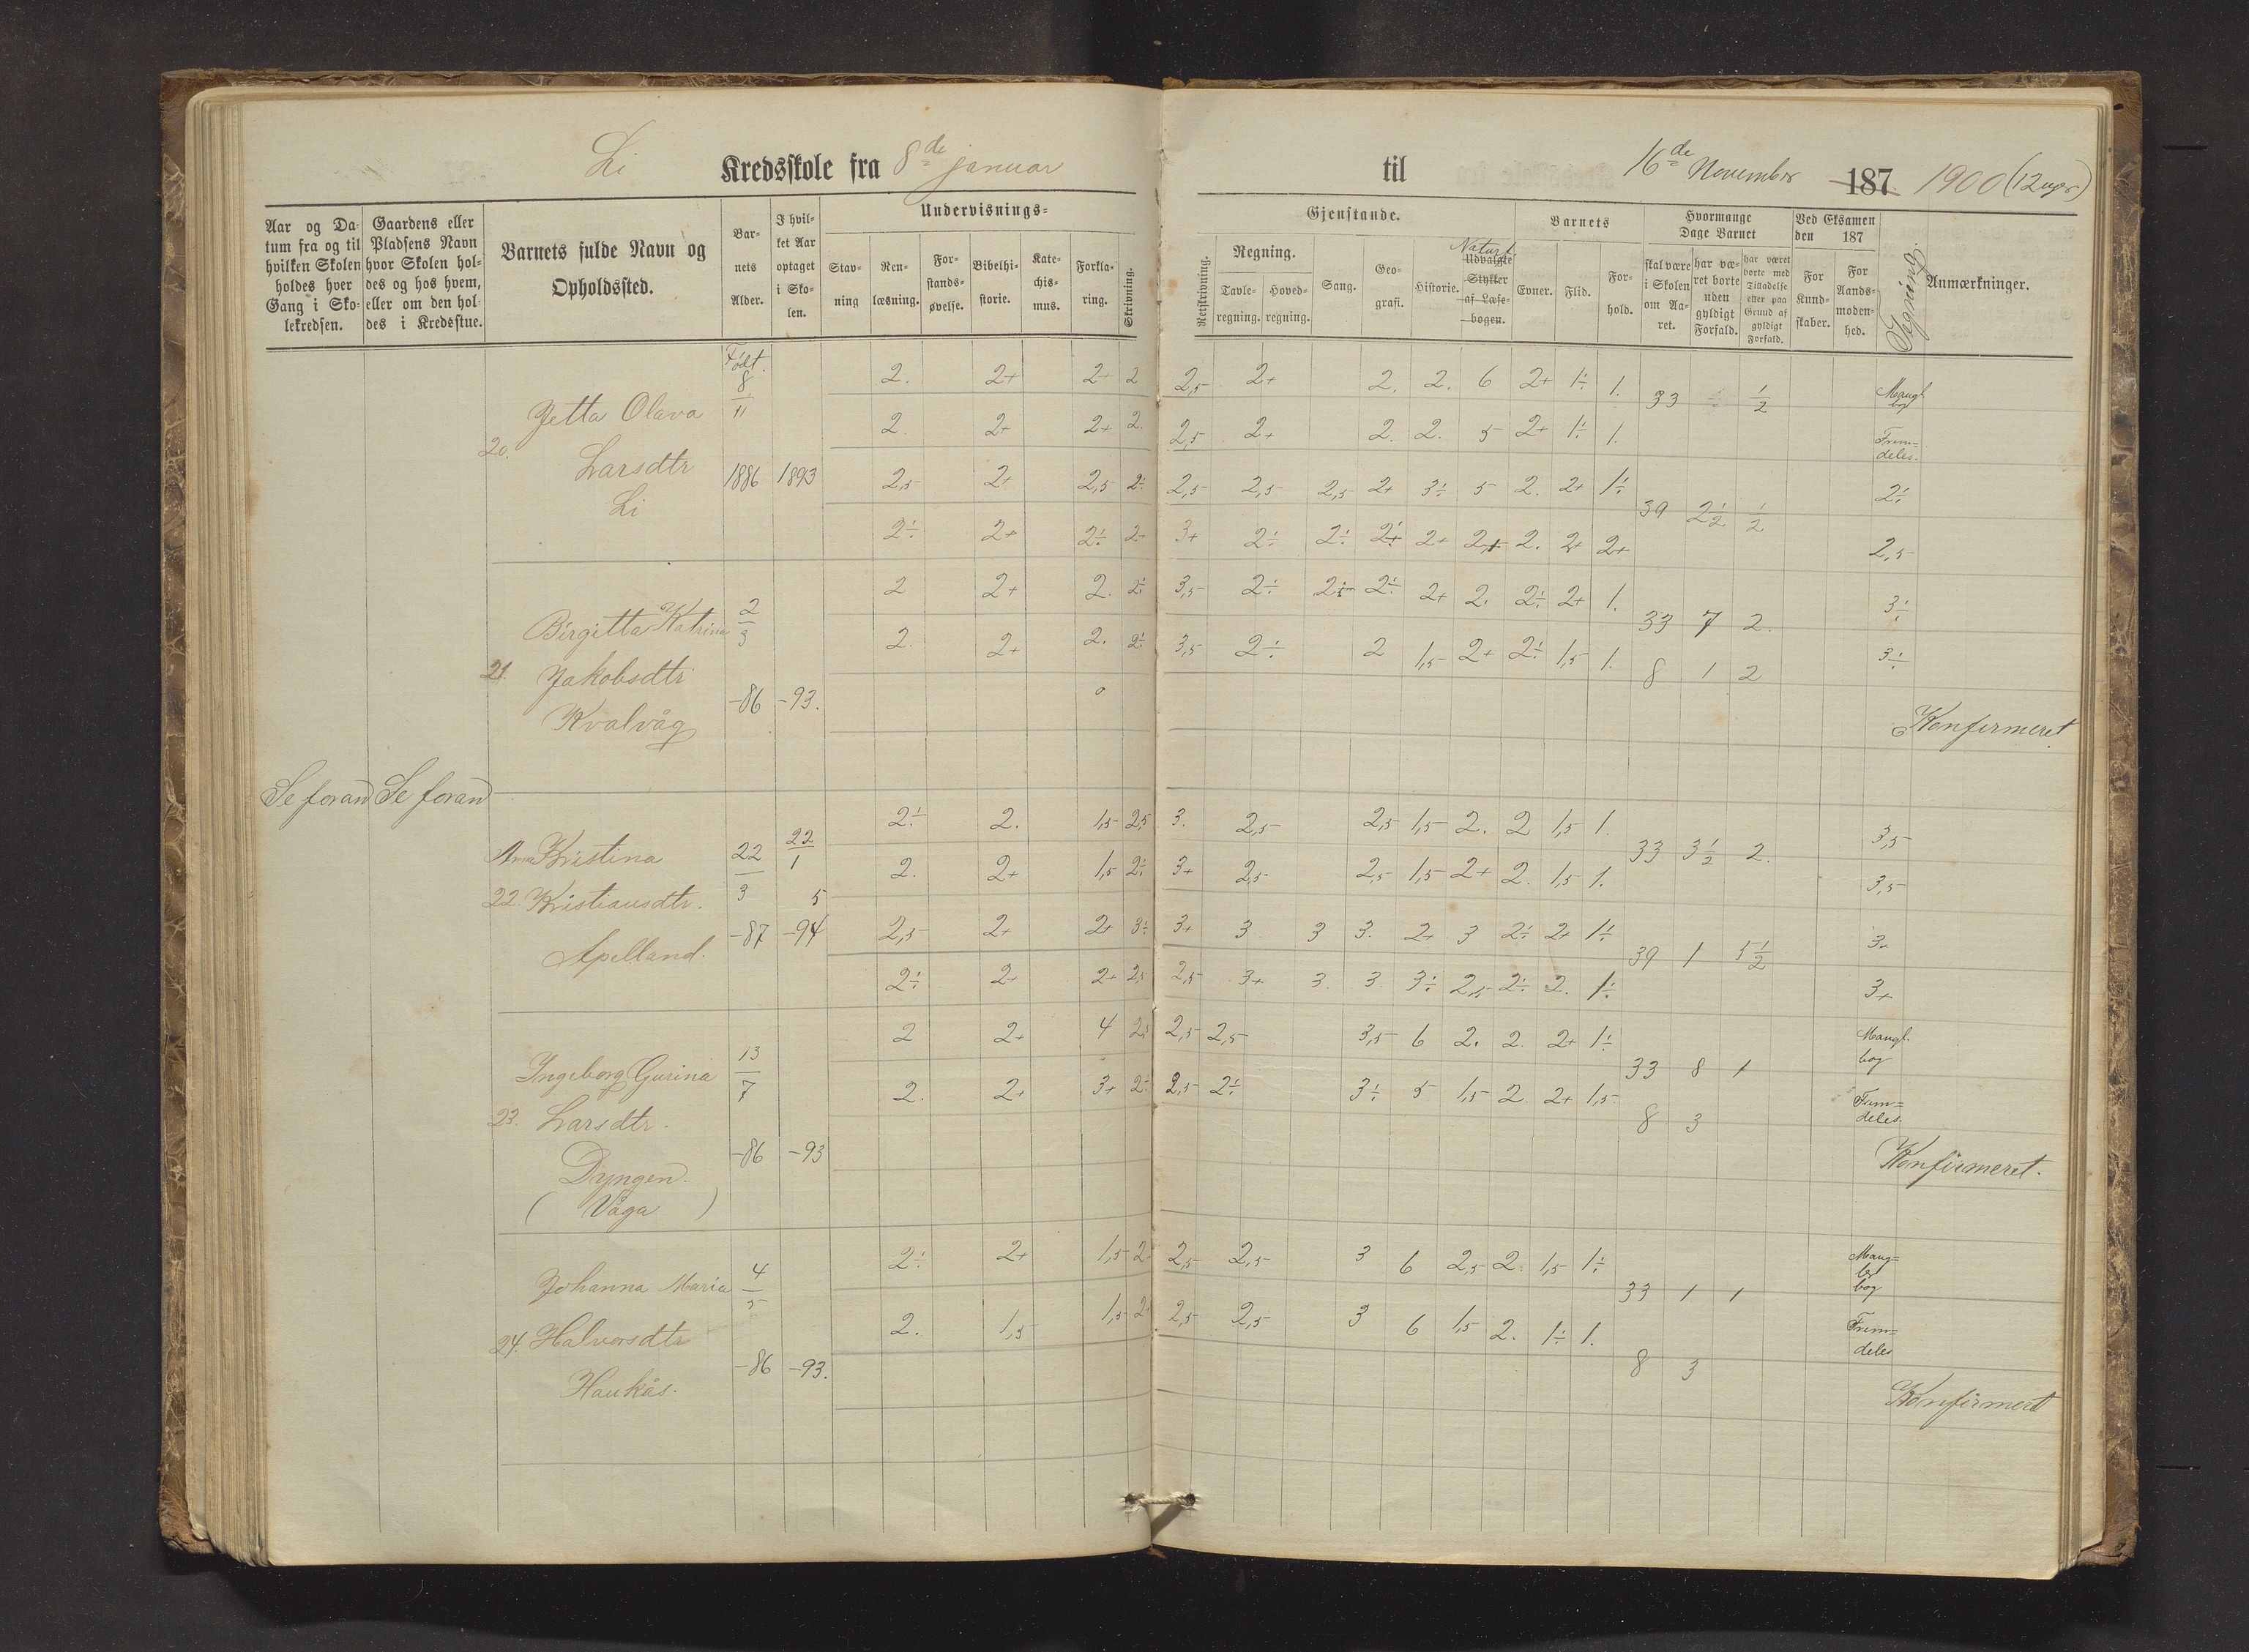 Li Kredsskole fra 8de januar til 16de November 187 1900 (12 uger)
Aar og Datum fra og til hvilken Skolen holdes hver Gang i Skolekredsen.
Gaardens eller Pladsens Navn hvor Skolen holdes og hos hvem, eller om den holdes i Kredsstue.
Barnets fulde Navn og Opholdssted.
Barnets Alder.
I hvilket Aar optaget i Skolen.
Undervisnings=
Stavning
Renlæsning.
Forstandsøvelse.
Bibelhistorie.
Katechismus.
Forklaring.
Skrivning.
Gjenstande.
Retskrivning.
Regning.
Tavleregning.
Hovedregning.
Sang.
Geografi.
Historie.
Naturl.
Udvalgte Stykker af Læsebogen.
Barnets
Evner.
Flid.
Forhold.
Hvormange Dage Barnet
skal være i Skolen om Aaret.
har været borte uden gyldigt Forfald.
har været borte med Tilladelse eller paa Grund af gyldigt Forfald.
Ved Eksamen den 187
For Kundskaber.
For Aandsmodenhed.
Tegning.
Anmærkninger.
Se foran Se foran
Født.
8/11 2. 2+ 2+ 2 2,5 2+ 2. 2. 6 2+ 1÷ 1. 33 1/2 Mangl bog
20. Jetta Olava
2. 2+ 2+ 2. 2,5 2+ 2. 2. 5 2+ 1÷ 1. Frem=deles.
Larsdtr 1886 1893 2,5 2+ 2,5 2÷ 2,5 2,5 2,5 2+ 3÷ 5 2. 2+ 1÷ 39 2 1/2 1/2 2÷
Li
2÷ 2+ 2÷ 2+ 3+ 2÷ 2÷ 2÷ 2+ 2. 2+ 2+ 2,5
Birgitta Katrina 2/3 2 2+ 2. 2÷ 3,5 2÷ 2÷ 2+ 2. 2÷ 2+ 1. 33 7 2. 3÷
21. Jakobsdtr 2. 2+ 2. 2÷ 3,5 2÷ 2 1,5 2+ 2÷ 1,5 1. 8 1 2 3÷
Kvalvåg -86 -93. Konfirmeret.
Anna Kristina 22/3 22/1 2÷ 2. 1,5 2,5 3. 2,5 2,5 1,5 2. 2 1,5 1. 33 3 1/2 2. 3,5
22. Kristiansdtr. 5 2. 2+ 1,5 2÷ 3+ 2,5 2,5 1,5 2+ 2. 1,5 1. 3,5
Apelland. -87 -94 2,5 2+ 2+ 3÷ 3+ 3 3 3. 2+ 3 2÷ 2+ 1÷ 39 1 5 1/2 3+
2÷ 2+ 2+ 2,5 2,5 3+ 3. 3. 3÷ 2,5 2÷ 2. 1÷ 3+
Ingeborg Gurina 13/7 2 2+ 4 2,5 2,5 3,5 6 2. 2. 2+ 1÷ 33 8 1 Mangl. bog
23. Larsdtr. 2. 2+ 3+ 2÷ 2,5 2÷ 3÷ 5 1,5 2 2+ 1,5 8 3 Frem=deles.
Dyngen. -86 -93 Konfirmeret.
( Våga )
Johanna Maria 4/5 2÷ 2+ 1,5 2,5 2,5 3 6 2,5 2. 1,5 1÷ 33 1 1 Mang=l bog
24. Halvorsdtr 2. 1,5 1,5 2,5 2,5 3 6 1,5 2. 1÷ 1. 8 3 Frem=deles
Haukås. -86 -93. Konfirmeret